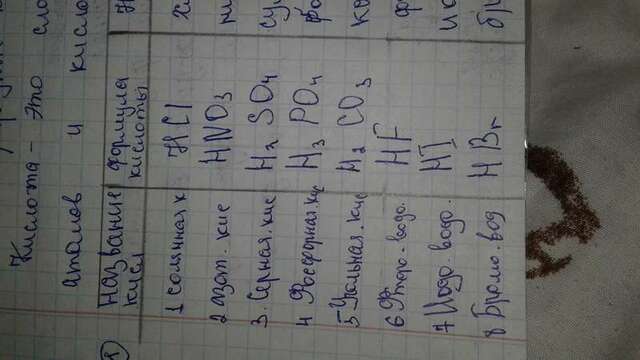 Кислота - это сло
атомов и кисло
название кисл формула кислоты
1 солянная к HCl
2 азот. кис HNO3
3. Серная. кис H2 SO4
4 Фосфорная. кис H3 PO4
5 Угольная. кис H2 CO3
6 Фторо. водо. HF
7 Иодо. водо. HI
8 Бромо. вод HBr